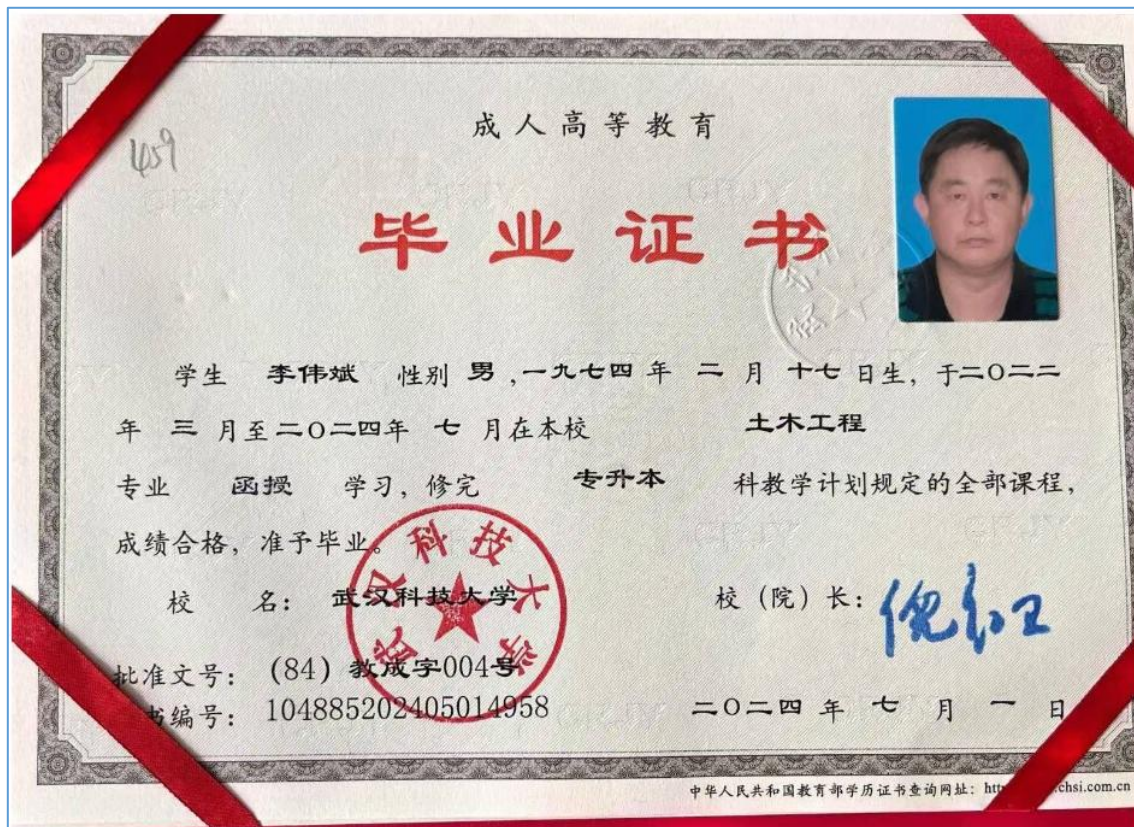 成人高等教育
459
毕业证书
学生 李伟斌 性别 男,一九七四年 二 月 十七 日生,于二〇二二
年 三 月至二〇二四年 七 月在本校 土木工程
专业 函授 学习,修完 专升本 科教学计划规定的全部课程,
成绩合格,准予毕业。
校 名: 武汉科技大学
校(院)长:
武汉科技大学
批准文号: (84)教成字004号
书编号: 104885202405014958
二〇二四 年 七 月 一 日
中华人民共和国教育部学历证书查询网址: http chsi.com.cn